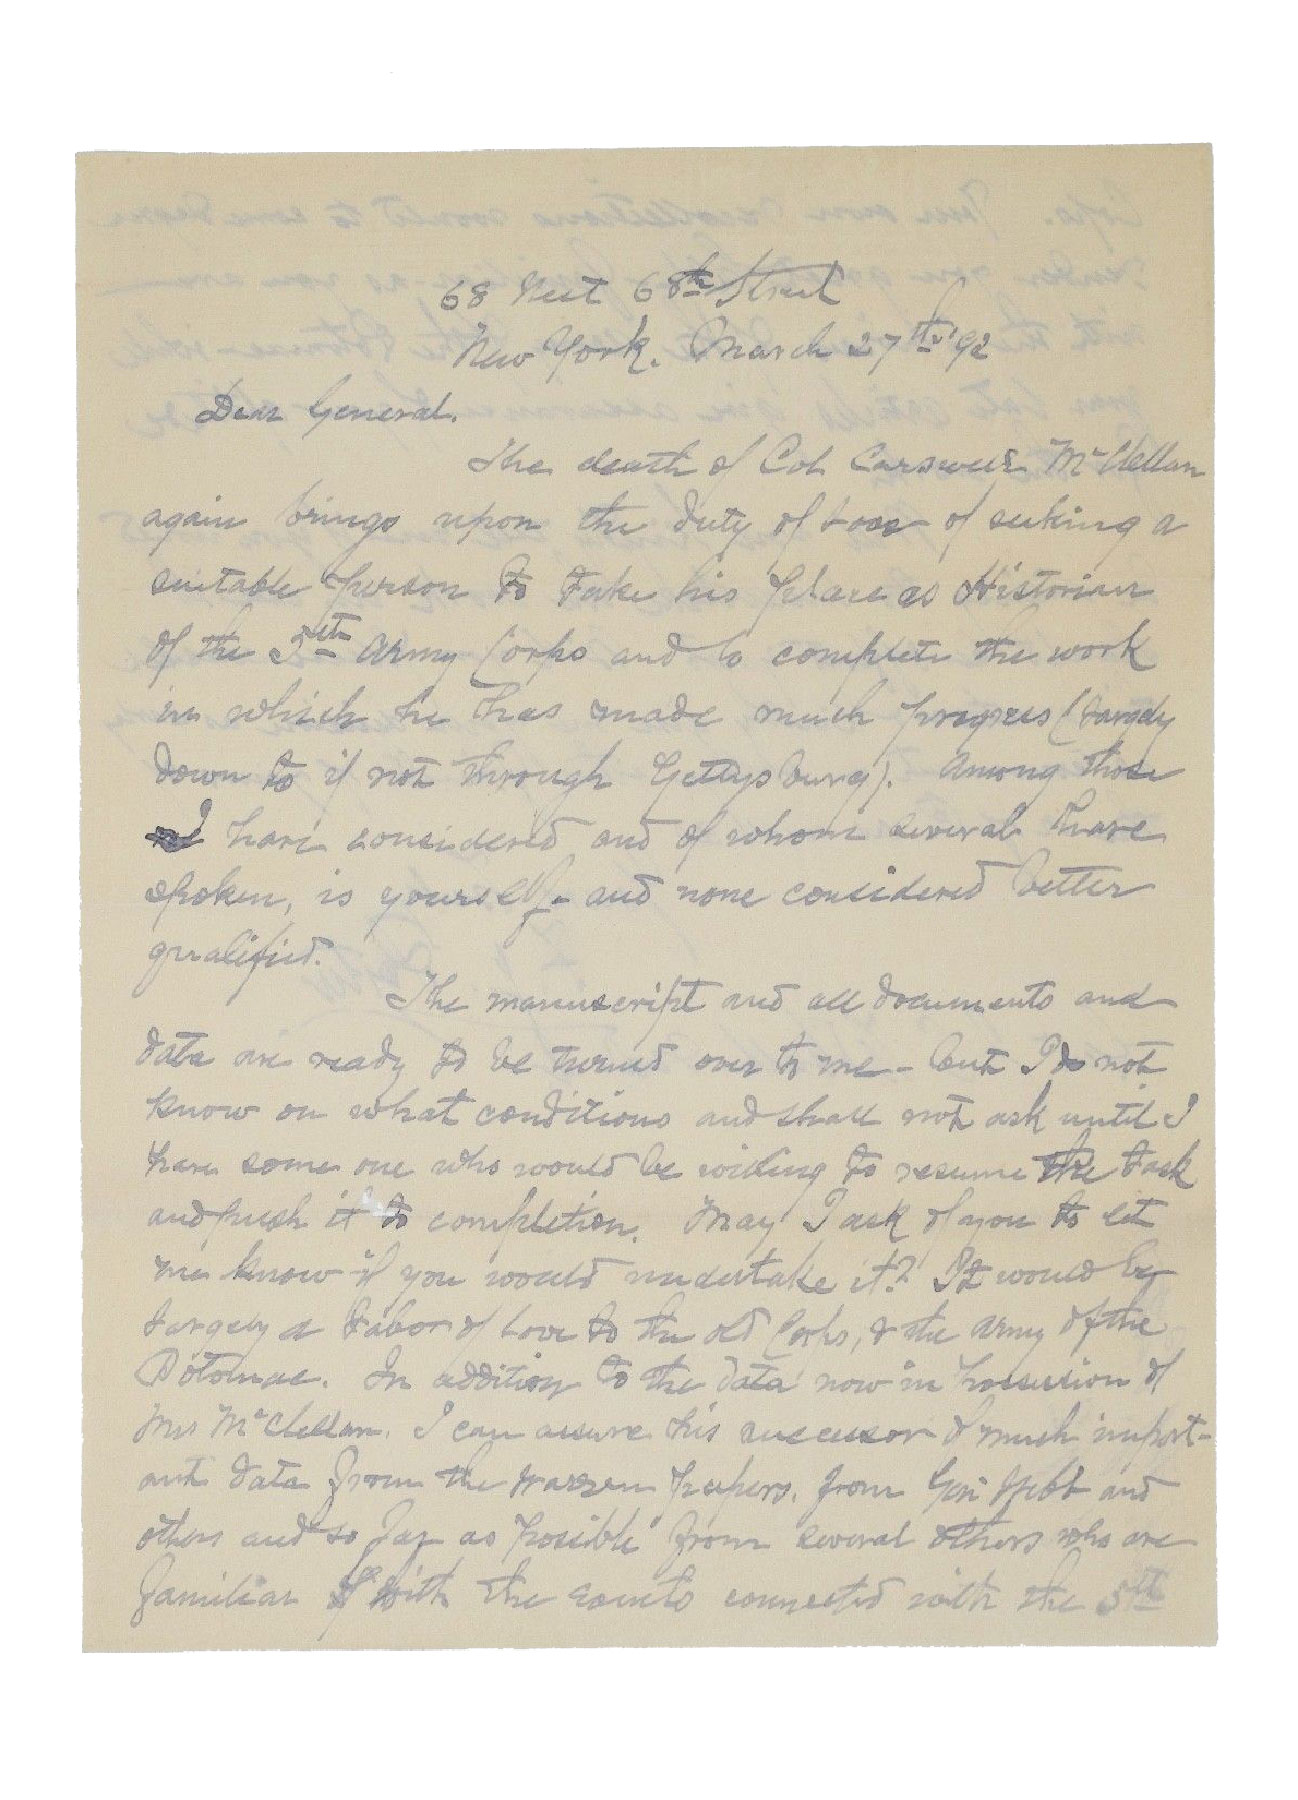 68 West 68th Street
New York. March 27th '92
Dear General.
The death of Col. Carswell McClellan
again brings upon the duty of loss of seeking a
suitable person to take his place as Historian
of the 5th Army Corps and to complete the work
in which he has made much progress (largely
down to if not through Gettysburg). Among those
I have considered and of whom several have
spoken, is yourself - and none considered better
qualified.
The manuscript and all documents and
data are ready to be turned over to me - but I do not
know on what conditions and shall not ask until I
have some one who would be willing to resume the task
and push it to completion. May I ask of you to let
me know if you would undertake it? It would be
largely a labor of love to the old Corps, & the Army of the
Potomac. In addition to the data now in possession of
Mrs McClellan. I can assure his successor of much import-
ant data from the Warren papers, from Gen Webb and
others and so far as possible from several others who are
familiar with the events connected with the 5th